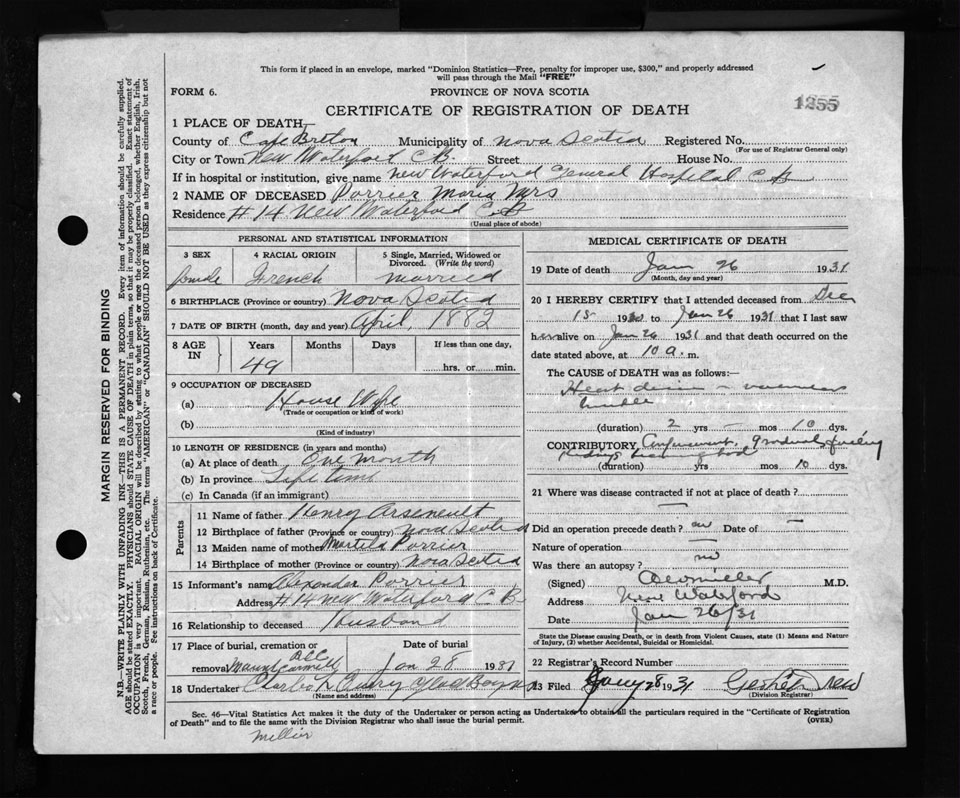 This form if placed in an envelope, marked "Dominion Statistics—Free, penalty for improper use, $300," and properly addressed
will pass through the Mail "FREE"
FORM 6.
PROVINCE OF NOVA SCOTIA
1255
CERTIFICATE OF REGISTRATION OF DEATH
1 PLACE OF DEATH—
County of Cape Breton Municipality of Nova Scotia Registered No.
(For use of Registrar General only)
City or Town New Waterford CB. Street House No.
If in hospital or institution, give name New Waterford General Hospital C.B
2 NAME OF DECEASED Porrier Maria Mrs
Residence #14 New Waterford C.B
(Usual place of abode)
PERSONAL AND STATISTICAL INFORMATION
3 SEX
4 RACIAL ORIGIN
5 Single, Married, Widowed or Divorced. (Write the word)
French
married
6 BIRTHPLACE (Province or country) Nova Scotia
7 DATE OF BIRTH (month, day and year) April, 1882
8 AGE IN
Years
Months
Days
If less than one day,
49
hrs. or min.
9 OCCUPATION OF DECEASED
(a) House Wife
(Trade or occupation or kind of work)
(b)
(Kind of industry)
10 LENGTH OF RESIDENCE (in years and months)
(a) At place of death One month
(b) In province Life time
(c) In Canada (if an immigrant)
Parents
11 Name of father Henry Arseneult
12 Birthplace of father (Province or country) Nova Scotia
13 Maiden name of mother Porrier
14 Birthplace of mother (Province or country) Nova Scotia
15 Informant's name Alexander Porrier
Address #14 New Waterford C.B.
16 Relationship to deceased Husband
17 Place of burial, cremation or removal
Date of burial
Mount Carmell
Jan 28 1931
18 Undertaker Charles Glace Bay N.S
(Name and address)
MEDICAL CERTIFICATE OF DEATH
19 Date of death Jan 26 1931
(Month, day and year)
20 I HEREBY CERTIFY that I attended deceased from Dec
15 1930 to Jan 26 1931 that I last saw
her alive on Jan 26 1931 and that death occurred on the
date stated above, at 10 a. m.
The CAUSE of DEATH was as follows:—
(duration) 2 yrs – mos 10 dys.
CONTRIBUTORY Confinement, Gradual
(duration) yrs mos 10 dys.
21 Where was disease contracted if not at place of death?
—
Did an operation precede death? no Date of —
Nature of operation —
Was there an autopsy? no
(Signed) M.D.
Address New Waterford
Date Jan 26/31
State the Disease causing Death, or in death from Violent Causes, state (1) Means and Nature
of Injury, (2) whether Accidental, Suicidal or Homicidal.
22 Registrar's Record Number
23 Filed Jany 28 1931
(Division Registrar)
Sec. 46—Vital Statistics Act makes it the duty of the Undertaker or person acting as Undertaker to obtain all the particulars required in the "Certificate of Registration
of Death" and to file the same with the Division Registrar who shall issue the burial permit.
(OVER)
MARGIN RESERVED FOR BINDING
N.B.—WRITE PLAINLY WITH UNFADING INK—THIS IS A PERMANENT RECORD. Every item of information should be carefully supplied.
AGE should be stated EXACTLY. PHYSICIANS should STATE CAUSE OF DEATH in plain terms, so that it may be properly classified. Exact statement of
OCCUPATION is very important. RACIAL ORIGIN will be described by stating to what people or race the deceased person belonged, whether English, Irish,
Scotch, French, German, Russian, Ruthenian, etc. The terms "AMERICAN" or "CANADIAN" SHOULD NOT BE USED as they express citizenship but not
a race or people. See instructions on back of Certificate.